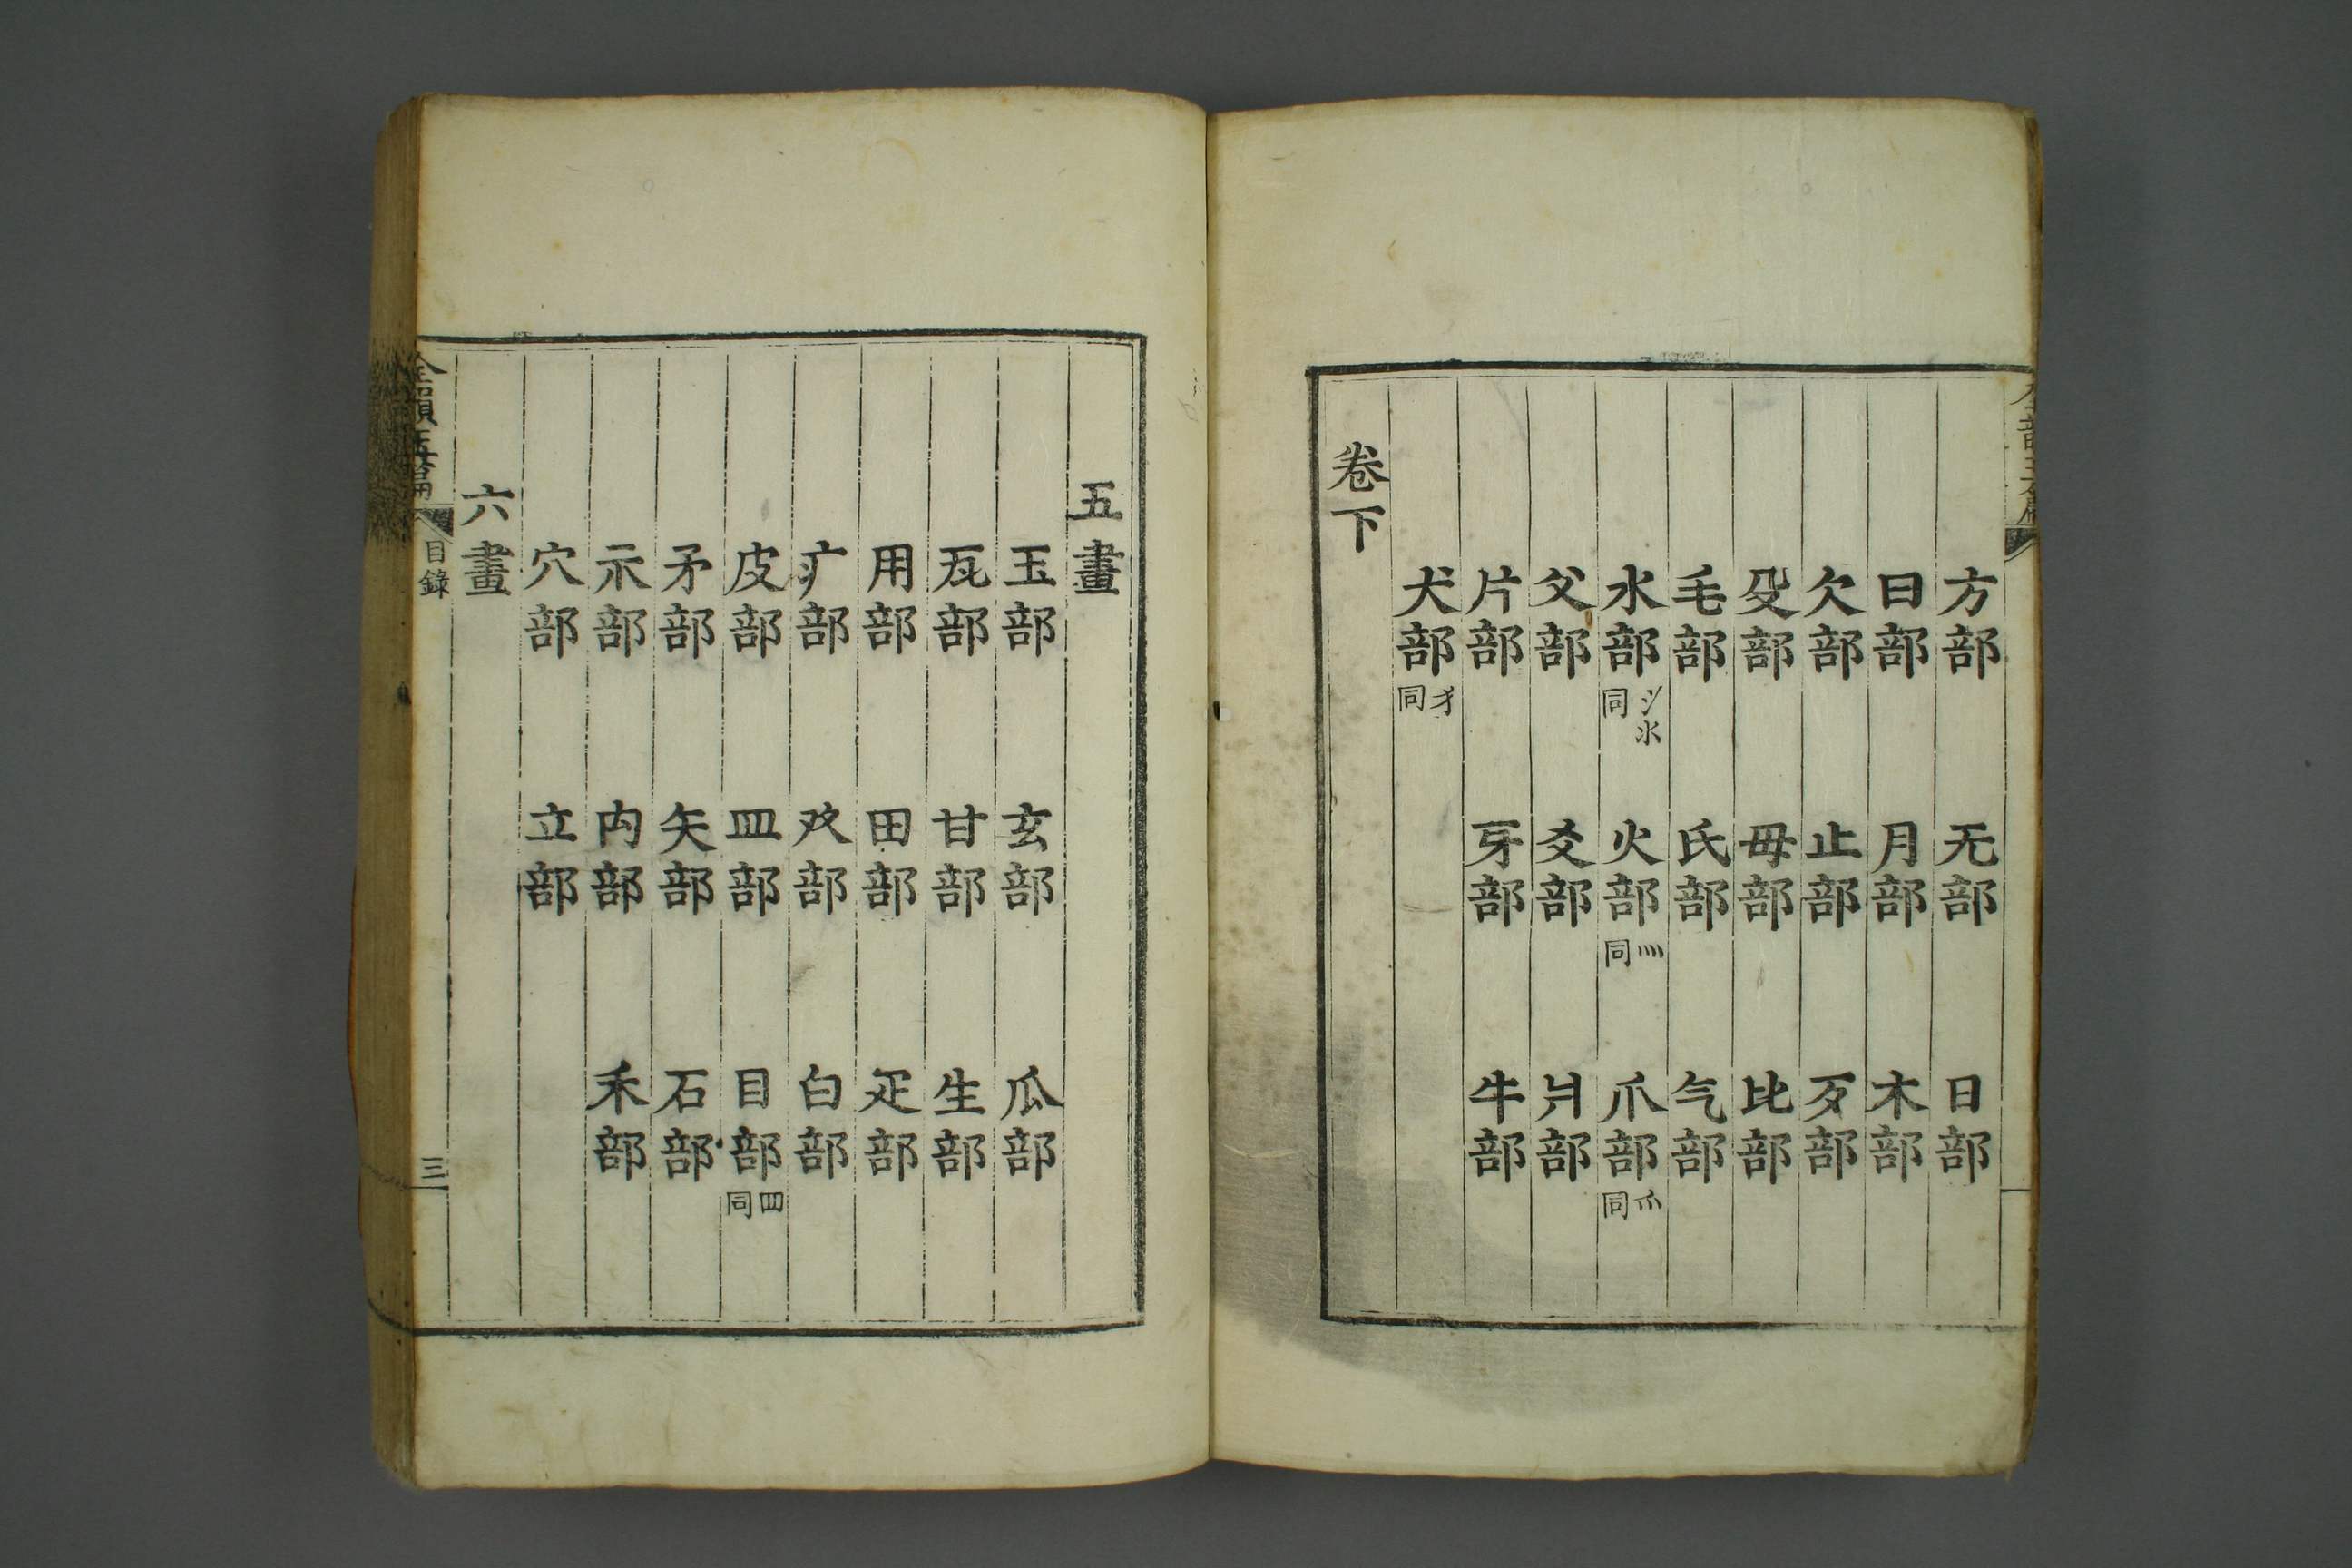 方部 无部 日部
曰部 月部 木部
欠部 止部 歹部
殳部 毋部 比部
毛部 氏部 气部
水部 氵氺同 火部 灬同 爪部 爫同
父部 爻部 爿部
片部 牙部 牛部
犬部 犭同
卷下
五畫
玉部 玄部 瓜部
瓦部 甘部 生部
用部 田部 疋部
疒部 癶部 白部
皮部 皿部 目部 罒同
矛部 矢部 石部
示部 禸部 禾部
穴部 立部
六畫
全韻玉篇 目錄 三